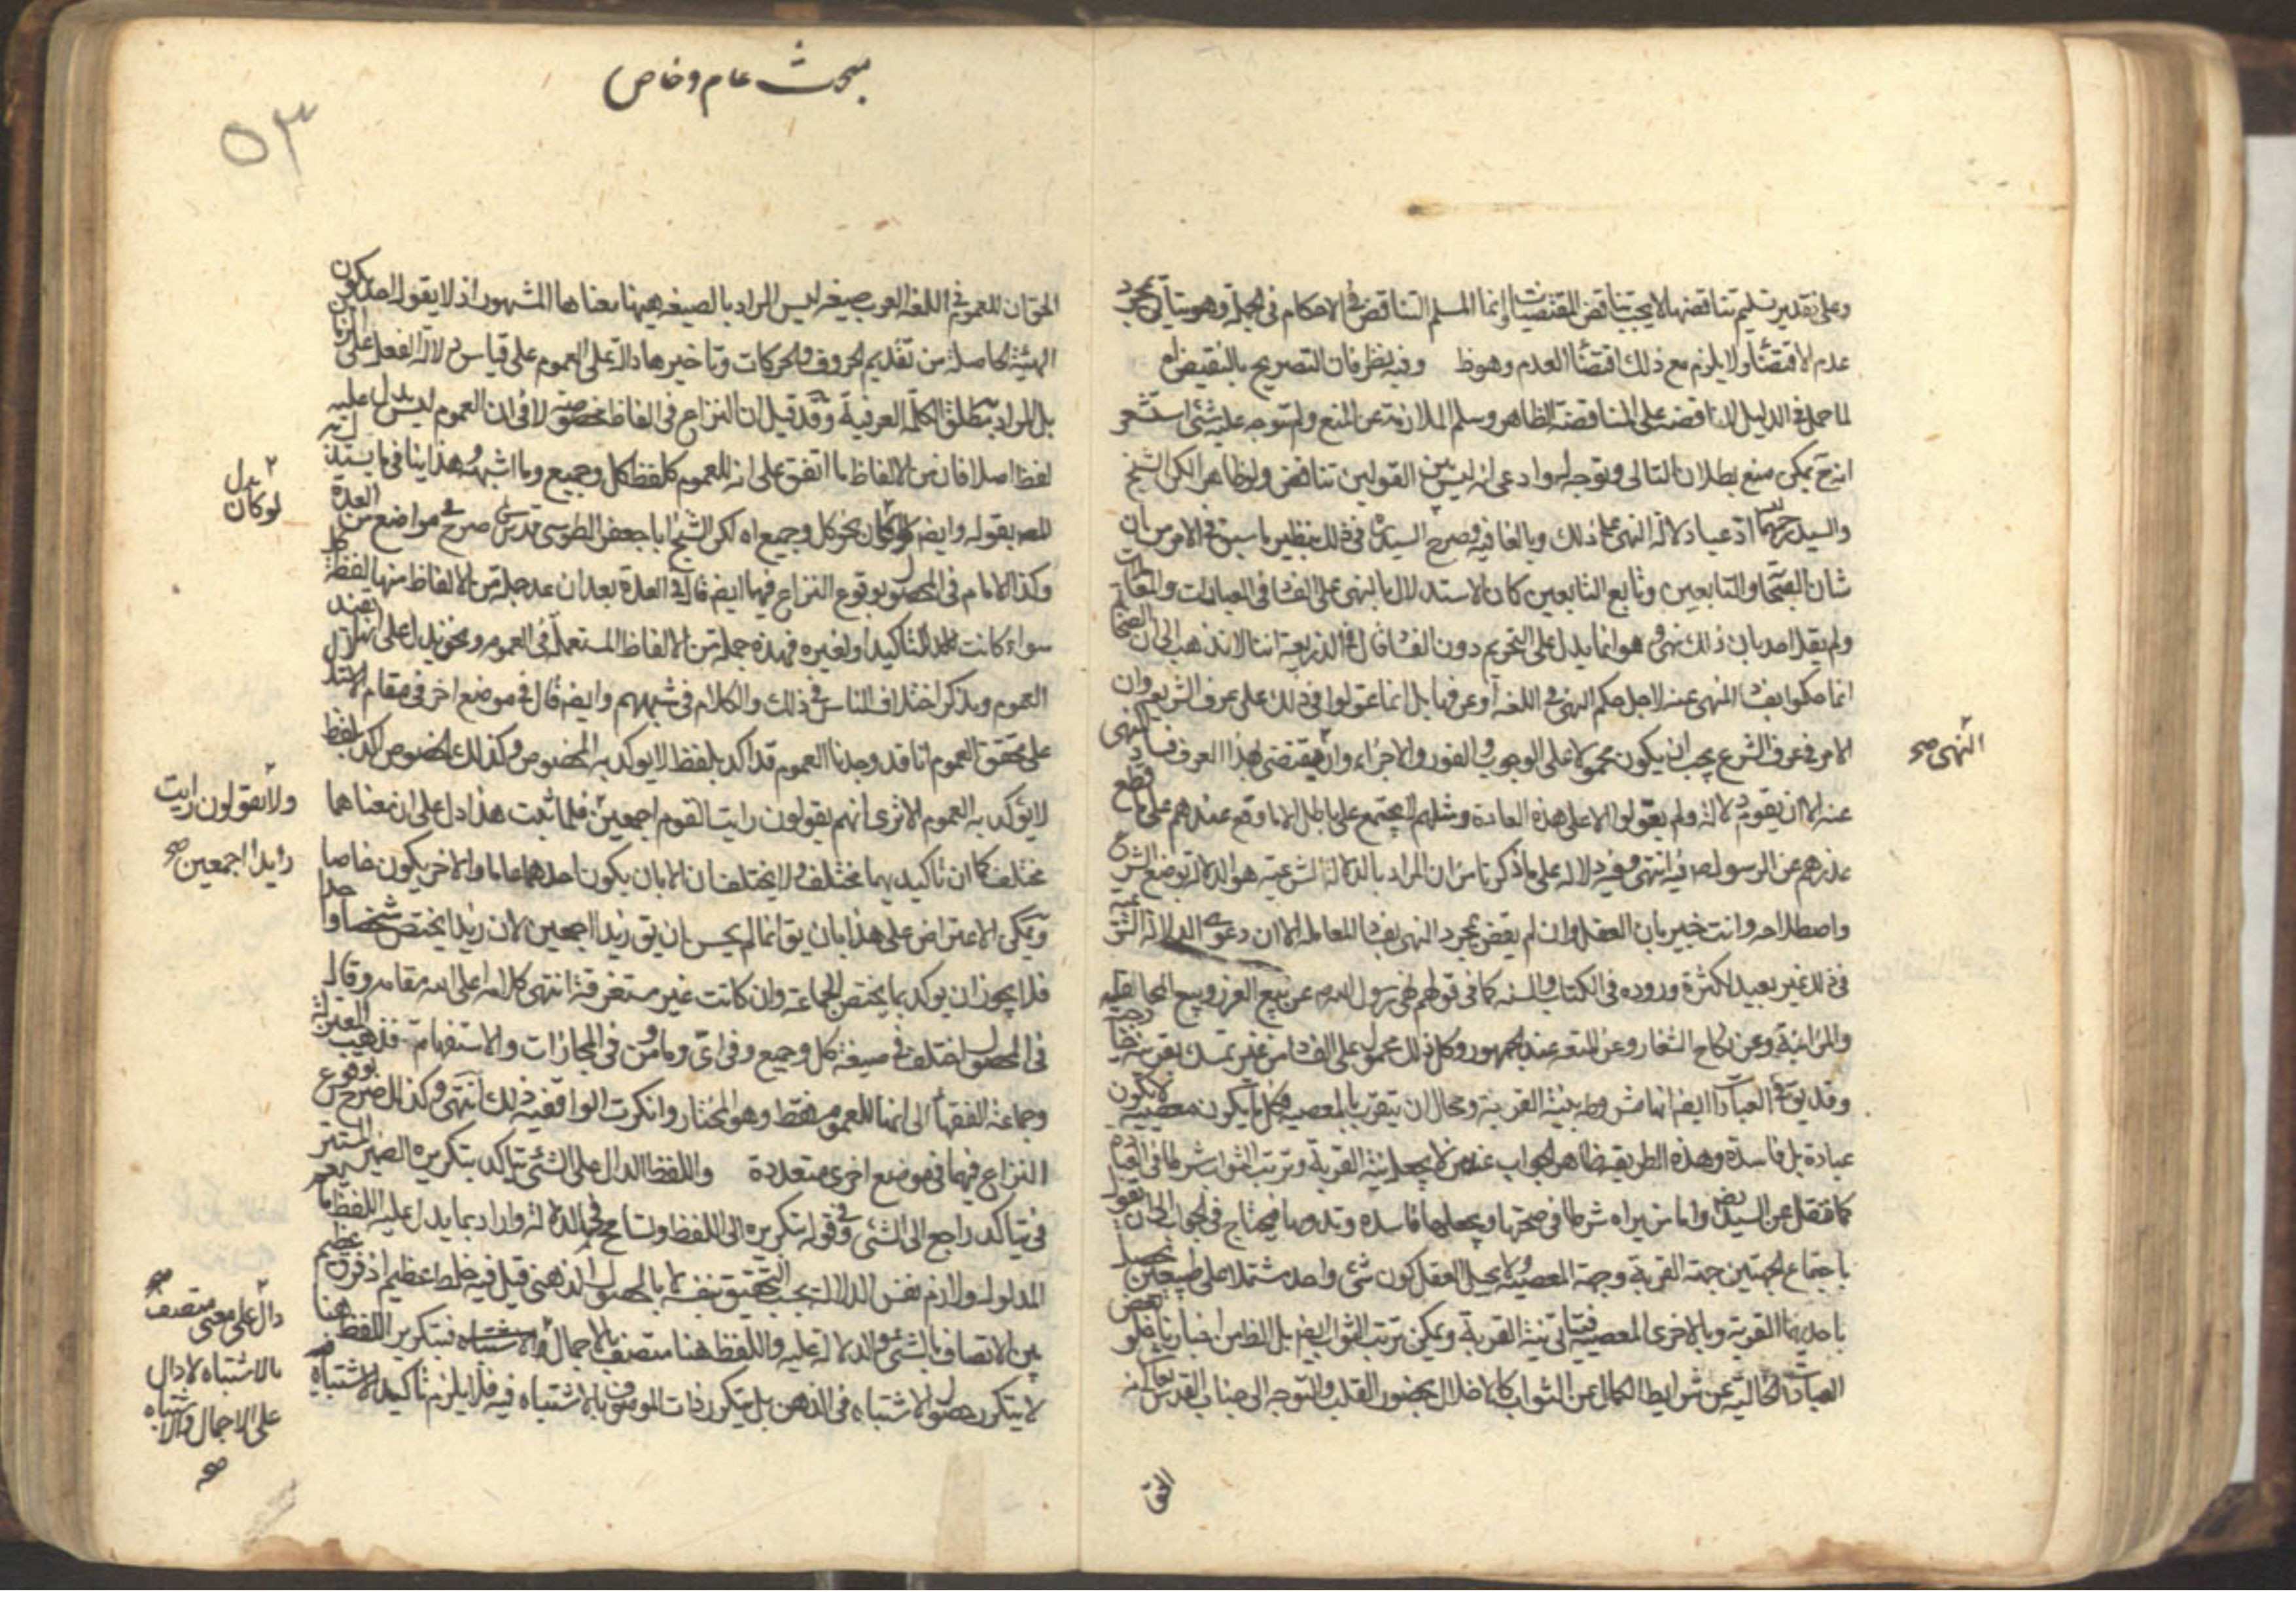 وعلى تقدير تسليم تناقضها لا يجب تناقض المقتضيات وانما المسلم التناقض في الاحكام في الجملة وهو يتأتى بمجرد
عدم الاقتضاء ولا يلزم مع ذلك اقتضاء العدم وهو ظ وفيه نظر فان التصريح بالنقيض
لما حمل في الدليل المناقضة على المناقضة الظاهر وسلم الملازمة عن المنع ولم يتوجه عليه شئ استشعر
انه ح يمكن منع بطلان التالي ويوجه له وادعى انه ليس بين القولين تناقض ولو ظاهرا لكن الشيخ
والسيد رحمهما ادعيا دلالة النهي على ذلك وبالغا فيه وصرح السيد في ذلك بنظير ما سبق في الامر من ان
شان الصحابة والتابعين وتابع التابعين كان الاستدلال بالنهي على الفساد في العبادات والمعاملات
ولم يقل احد بان ذلك نهي وهو انما يدل على التحريم دون الفساد قال في الذريعة اننا لا نذهب الى ان الصحابة
انما حكموا بفساد المنهي عنه لاجل حكم النهي في اللغة او عرفها بل انما عولوا في ذلك على عرف الشريعة وان
الامر في عرف الشرع يجب ان يكون محمولا على الوجوب والفور والاجزاء وان يقتضي بهذا العرف فساد المنهي
النهي صح
عنه الا ان يقوم دلالة ولم يعولوا الا على هذه العادة ومثلهم لا يجتمع على باطل الا ما وقع عندهم على ما قطع
عذرهم عن الرسول ص فيه انتهى وفيه دلالة على ما ذكرنا من ان المراد بالدلالة الشرعية هو الدلالة بوضع الشرع
واصطلاحه وانت خبير بان العقل وان لم يقض بمجرد النهي بفساد المعاملة الا ان دعوى الدلالة الشرعية
في ذلك غير بعيد لكثرة وروده في الكتاب والسنة كما في قولهم نهى رسول الله ص عن بيع الغرر وبيع المحاقلة
والمزابنة وعن نكاح الشغار وعن المتعة عند الجمهور وكل ذلك محمول على الفساد من غير تمسك بقرينة خارجية
وقد يق في العبادات ايضا انها مشروطة بنية القربة ومحال ان يتقرب بالمعصية فكل ما يكون معصية لا يكون
عبادة بل فاسدة وهذه الطريقة ظاهر الجواب عند من لا يجعل نية القربة وترتب الثواب شرطا في العبادة
كما نقل عن السيد رض واما من يراه شرطا في صحتها ويجعلها فاسدة وبدونها فيحتاج في الجواب الى ان يقول
باجتماع الجهتين جهة القربة وجهة المعصية ولا يحيل العقل كون شئ واحد مشتملا على طبيعتين يحصل
باحديهما القربة وبالاخرى المعصية فيتأتى نية القربة ويمكن ترتب الثواب ايضا بل الظ من اخبارنا خلو بعض
العبادات الخالية عن شرايط الكمال عن الثواب كالاخلال بحضور القلب والتوجه الى جناب القدس
الحق
مبحث عام وخاص
٥٣
الحق ان للعموم في اللغة العرب صيغة ليس المراد بالصيغة ههنا معناها المشهور اذ لا يقول احد يكون
الهيئة الحاصلة من تقديم الحروف والحركات وتاخيرها دالة على العموم على قياس دلالة الفعل على الزمان
بل المراد به مطلق الكلمة العرفية وقد قيل ان النزاع في الفاظ مخصوصة لا في ان العموم ليس يدل عليه
لفظ اصلا فان من الالفاظ ما اتفق على انه للعموم كلفظ كل وجميع وما اشبهه وهذا ينافي ما يستدل به
المص بقوله وايض لو كان نحو كل وجميع اه لكن الشيخ ابا جعفر الطوسي قدس سره صرح في مواضع من العدة
بدل لو كان
وكذا الامام في المحصول بوقوع النزاع فيها ايضا قال في العدة بعد ان عد جملة من الالفاظ منها لفظة كل
سواء كانت للتاكيد او لغيره فهذه جملة من الالفاظ المستعملة في العموم ونحن ندل على انها تفيد
العموم ونذكر اختلاف الناس في ذلك والكلام في شبههم وايضا قال في موضع اخر في مقام الاستدلال
على تحقق العموم انا قد وجدنا العموم قد اكد بلفظ لا يوكد به الخصوص وكذلك الخصوص اكد بلفظ
لا يوكد به العموم الا ترى انهم يقولون رايت القوم اجمعين فلما ثبت هذا دل على ان معناهما
ولا يقولون رايت
زيدا اجمعين صح
مختلف كما ان تاكيديهما مختلف ولا يختلفان الا بان يكون احدهما عاما والاخر يكون خاصا
ويمكن الاعتراض على هذا بان يق انما لم يحسن ان يق زيدا اجمعين لان زيدا يختص شخصا واحدا
فلا يجوز ان يوكد بما يختص الجماعة وان كانت غير مستغرقة انتهى كلامه اعلى الله مقامه وقال
في المحصول اختلف في صيغة كل وجميع وفي اي وما ومن في المجازات والاستفهام فذهب المعتزلة
وجماعة الفقهاء الى انها للعموم فقط وهو المختار وانكرت الواقفية ذلك انتهى وكذلك صرح بوقوع
النزاع فيهما في موضع اخرى متعددة واللفظ الدال على الشئ يتاكد بتكريره الضمير المستتر
في يتاكد راجع الى الشئ وفي قوله بتكريره الى اللفظ وتسامح في الدلالة واراد بما يدل عليه اللفظ ما يعم
المدلول ولازم نفس الدلالة بحسب التحقيق بنفسه لا بالحصول الذهني قيل فيه خلط عظيم اذ فرق عظيم
بين الاتصاف بالشئ والدلالة عليه واللفظ هنا متصف بالاجمال والاشتباه فبتكرير اللفظ هنا
لا يتكرر حصول الاشتباه في الذهن بل يتكرر ذات الموصوف بالاشتباه فيه فلا يلزم تاكيد الاشتباه
دال على معنى متصف
بالاشتباه لا دال
على الاجمال والاشتباه
صح